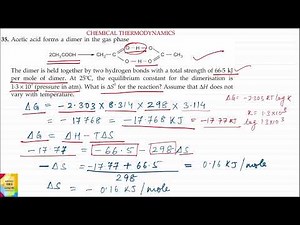 CHEMICAL THERMODYNAMICS
35. Acetic acid forms a dimer in the gas phase
2CH₃COOH → CH₃C O-H---O O---H-O C-CH₃
The dimer is held together by two hydrogen bonds with a total strength of 66.5 kJ
per mole of dimer. At 25°C, the equilibrium constant for the dimerisation is
1·3 × 10³ (pressure in atm). What is ΔS° for the reaction? Assume that ΔH does not
vary with temperature.
ΔG = -2.303 RT log K
ΔG = -2.303 × 8.314 × 298 × 3.114
K = 1.3 × 10³
log 1.3 × 10³
= -17768 = -17.768 KJ = -17.77 KJ
ΔG = ΔH - TΔS
-17.77 = -66.5 - 298 ΔS
-ΔS = -17.77 + 66.5 / 298 = 0.16 KJ/mole
ΔS = -0.16 KJ/mole